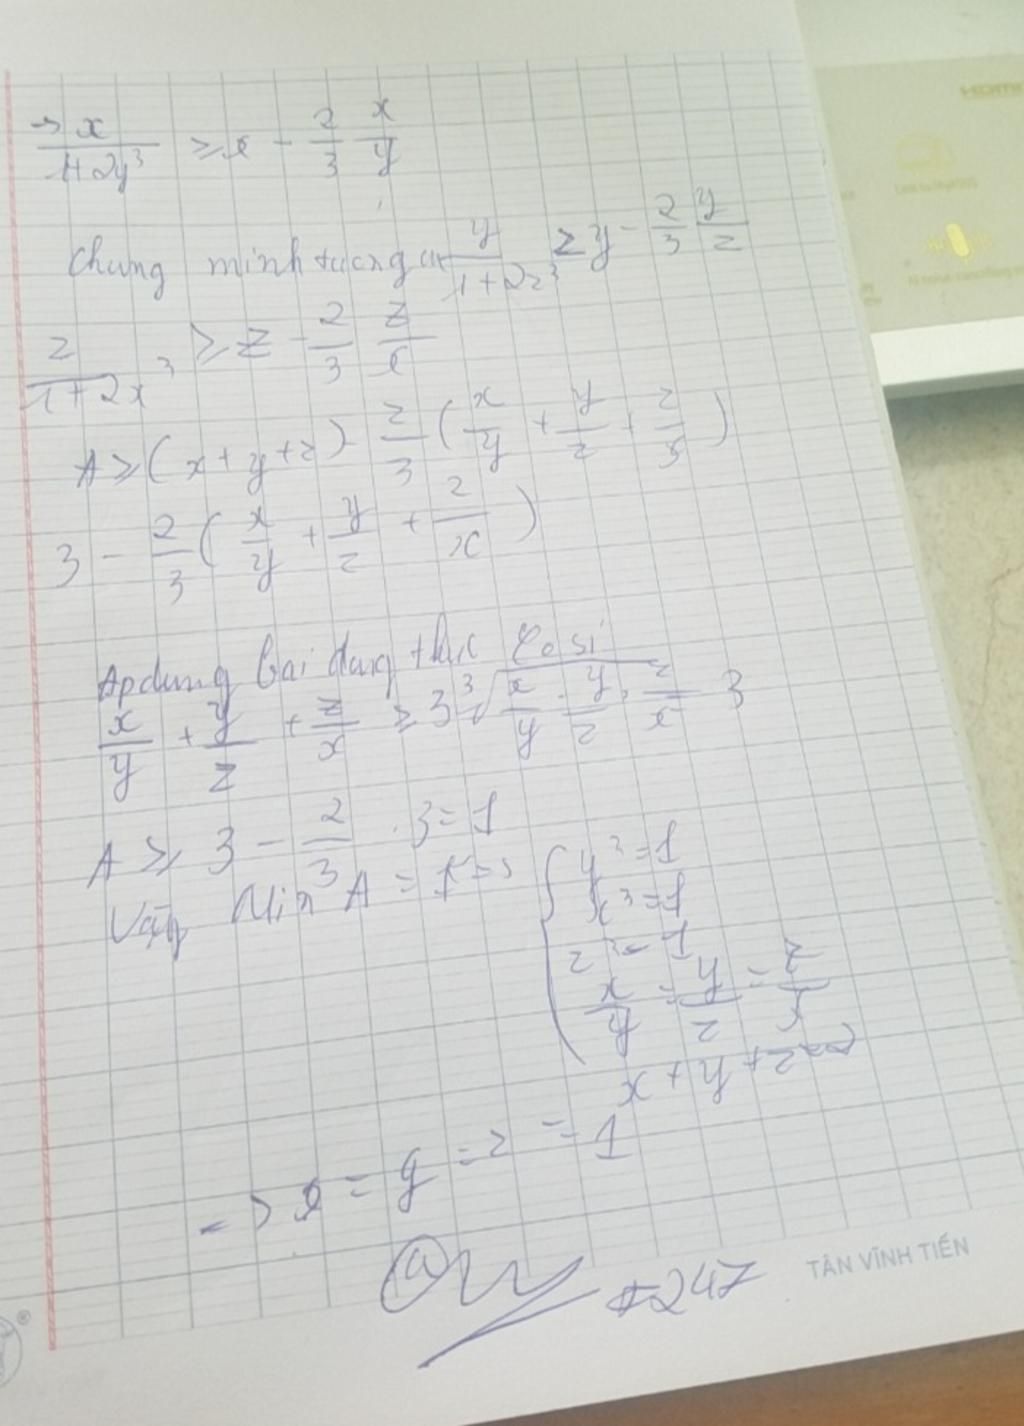 → x/(1+2y³) ≥ x - 2/3 x/y
Chung minh tương tự y/(1+2z³) ≥ y - 2/3 y/z
z/(1+2x³) ≥ z - 2/3 z/x
A ≥ (x+y+z) - 2/3 (x/y + y/z + z/x)
3 - 2/3 (x/y + y/z + z/x)
Ap dung bai dang thuc Cosi
x/y + y/z + z/x ≥ 3 ∛(x/y . y/z . z/x) = 3
A ≥ 3 - 2/3 . 3 = 1
Vậy Min A = 1 =>
y³ = 1
x³ = 1
z³ = 1
x/y = y/z = z/x
x + y + z =
=> x = y = z = 1
#247
TÂN VĨNH TIẾN
®
HDMI